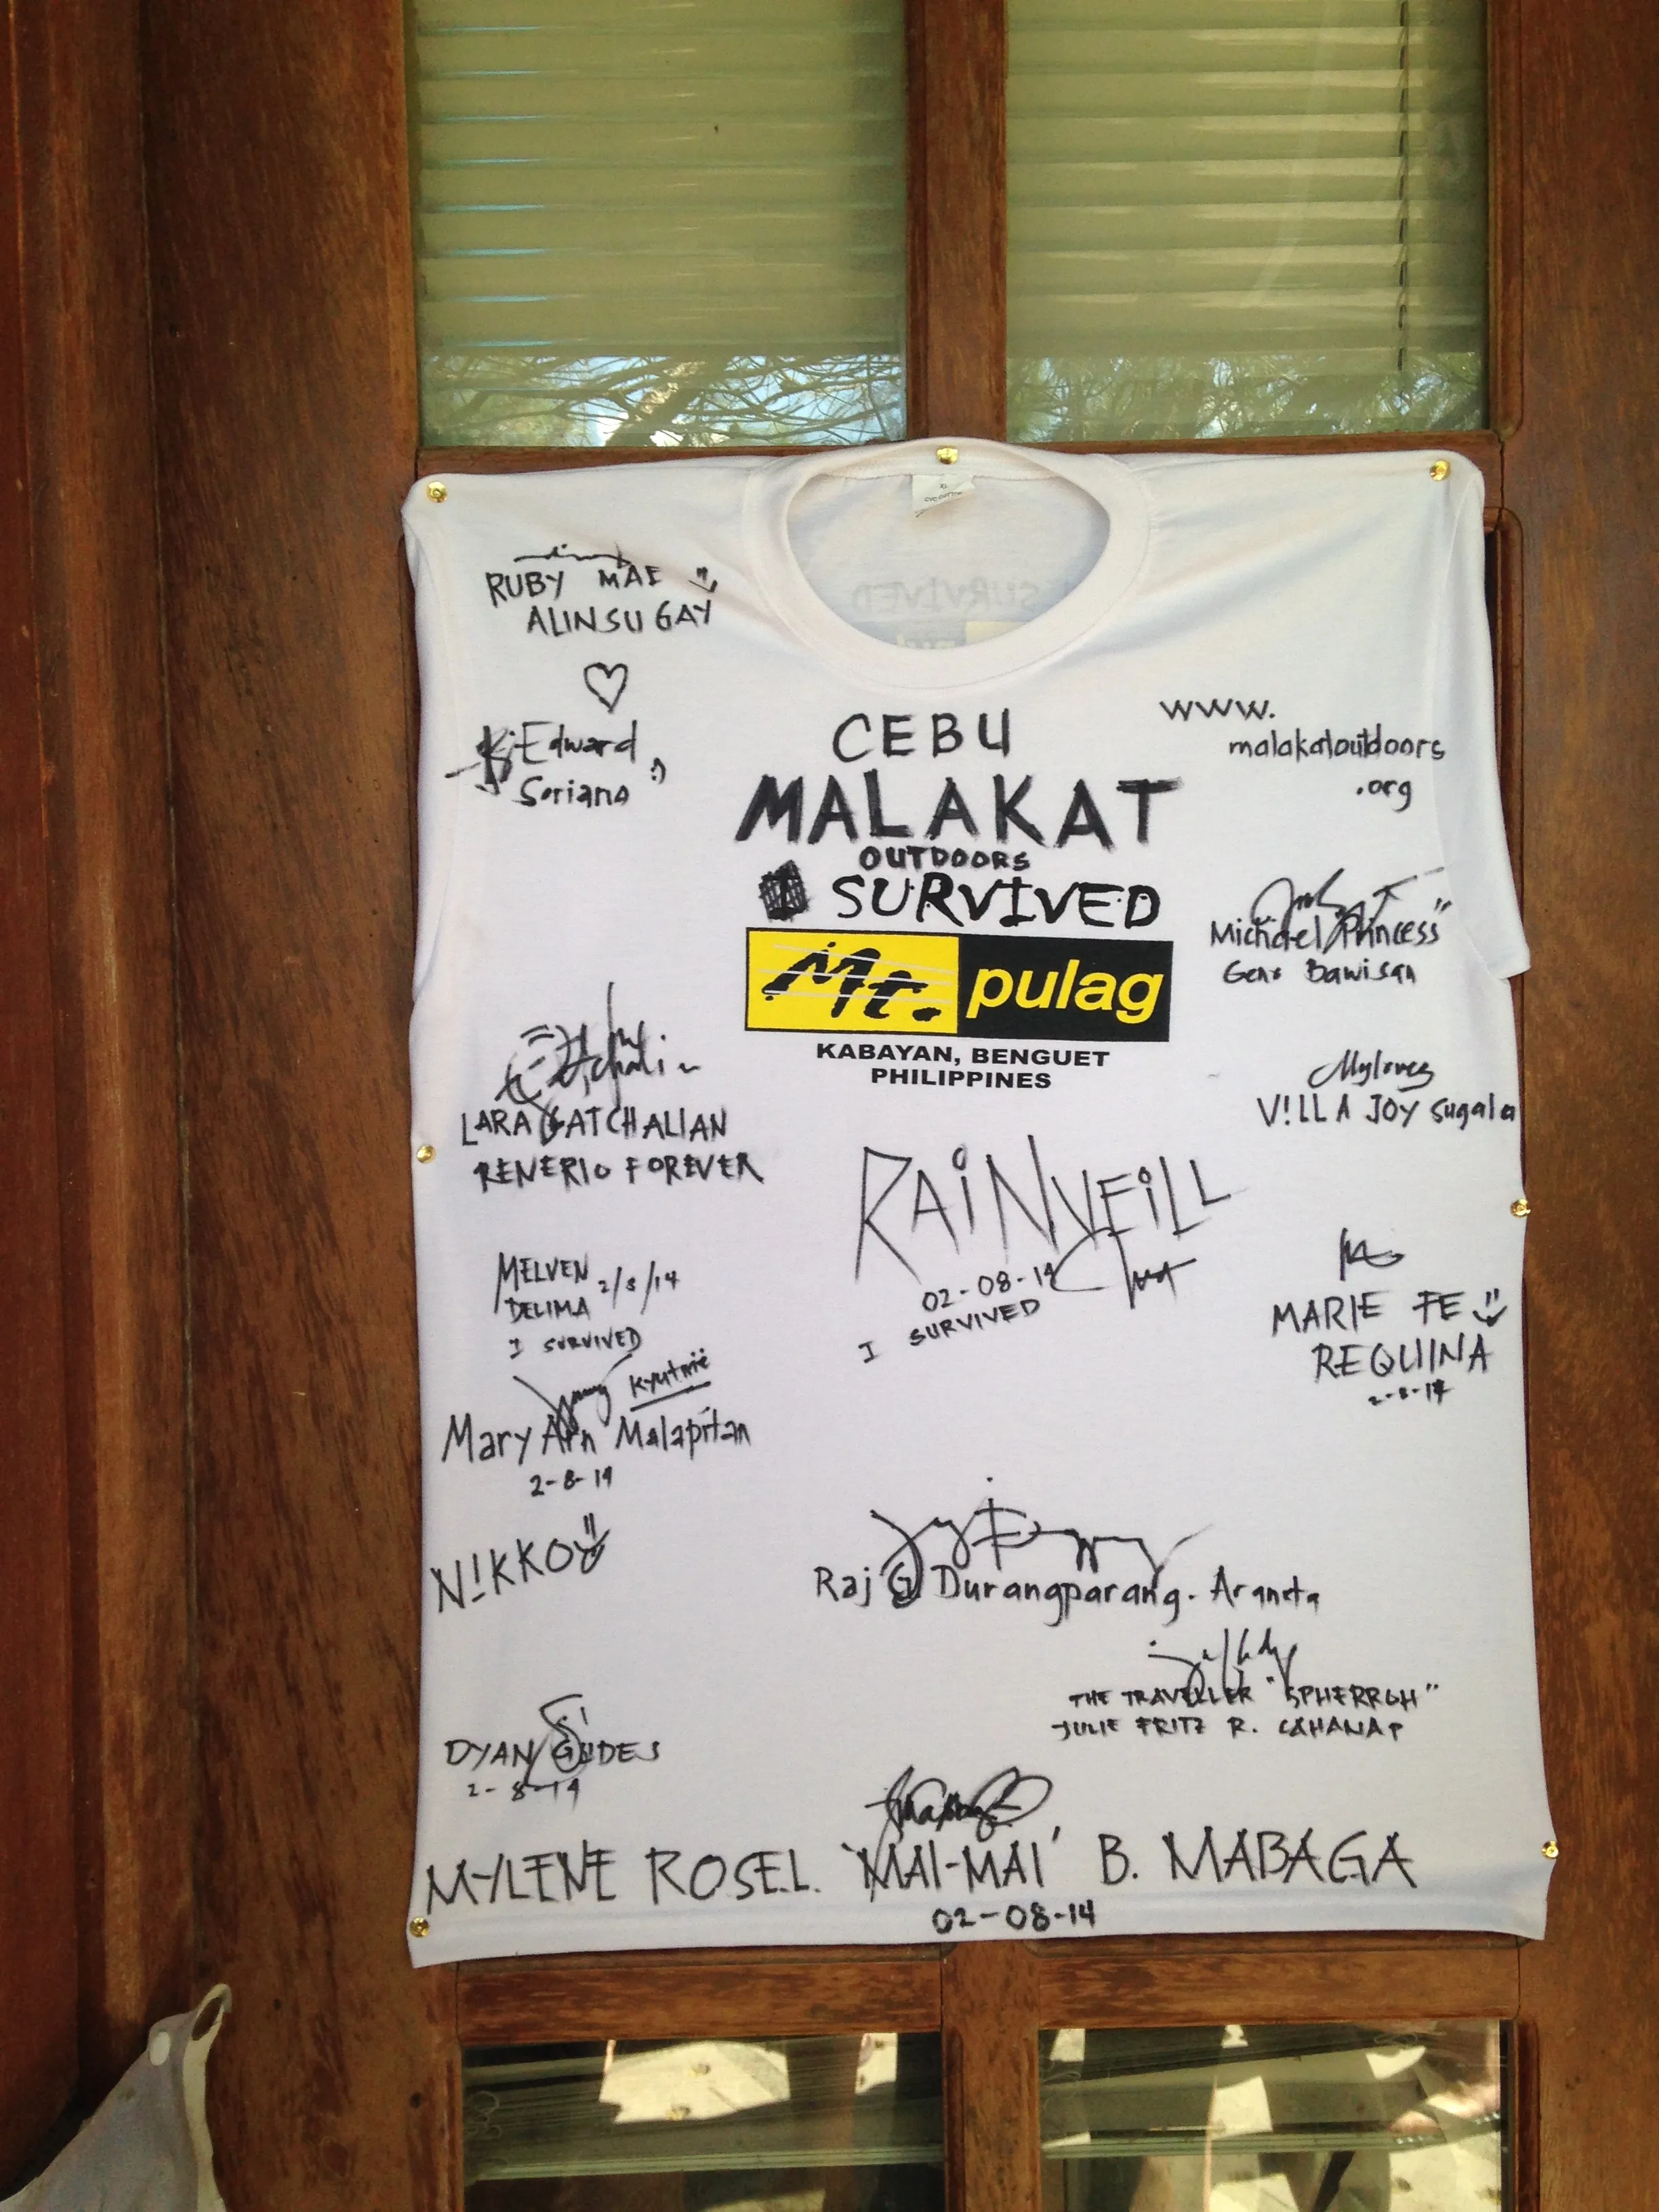 XL
RUBY MAE
ALINSUGAY
Edward
Soriano :)
CEBU
MALAKAT
OUTDOORS
I SURVIVED
Mt. pulag
KABAYAN, BENGUET
PHILIPPINES
www.
malakatoutdoors
.org
Michael "Princess"
Geno Bawisan
Myloves
V!LLA JOY Sugala
LARA GATCHALIAN
RENERIO FOREVER
RAiNVEiLL
02-08-14
I SURVIVED
MELVEN 2/8/14
DELIMA
I SURVIVED
MARIE FE
REQUINA
2-8-14
Kyutnie
Mary Ann Malapitan
2-8-14
N!KKO
Raj G Durangparang. Araneta
THE TRAVELLER "SPHERRGH"
JULIE FRITZ R. CAHANAP
DYAN GUDES
2-8-14
MYLENE ROSEL. 'MAI-MAI' B. MABAGA
02-08-14